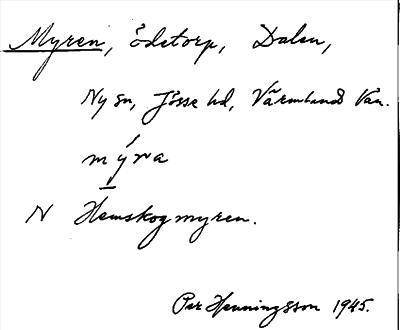 Myren, ödetorp, Dalen,
Ny sn, Jösse hd, Värmlands län.
mýra
N Hemskogmyren.
Per Henningsson 1945.